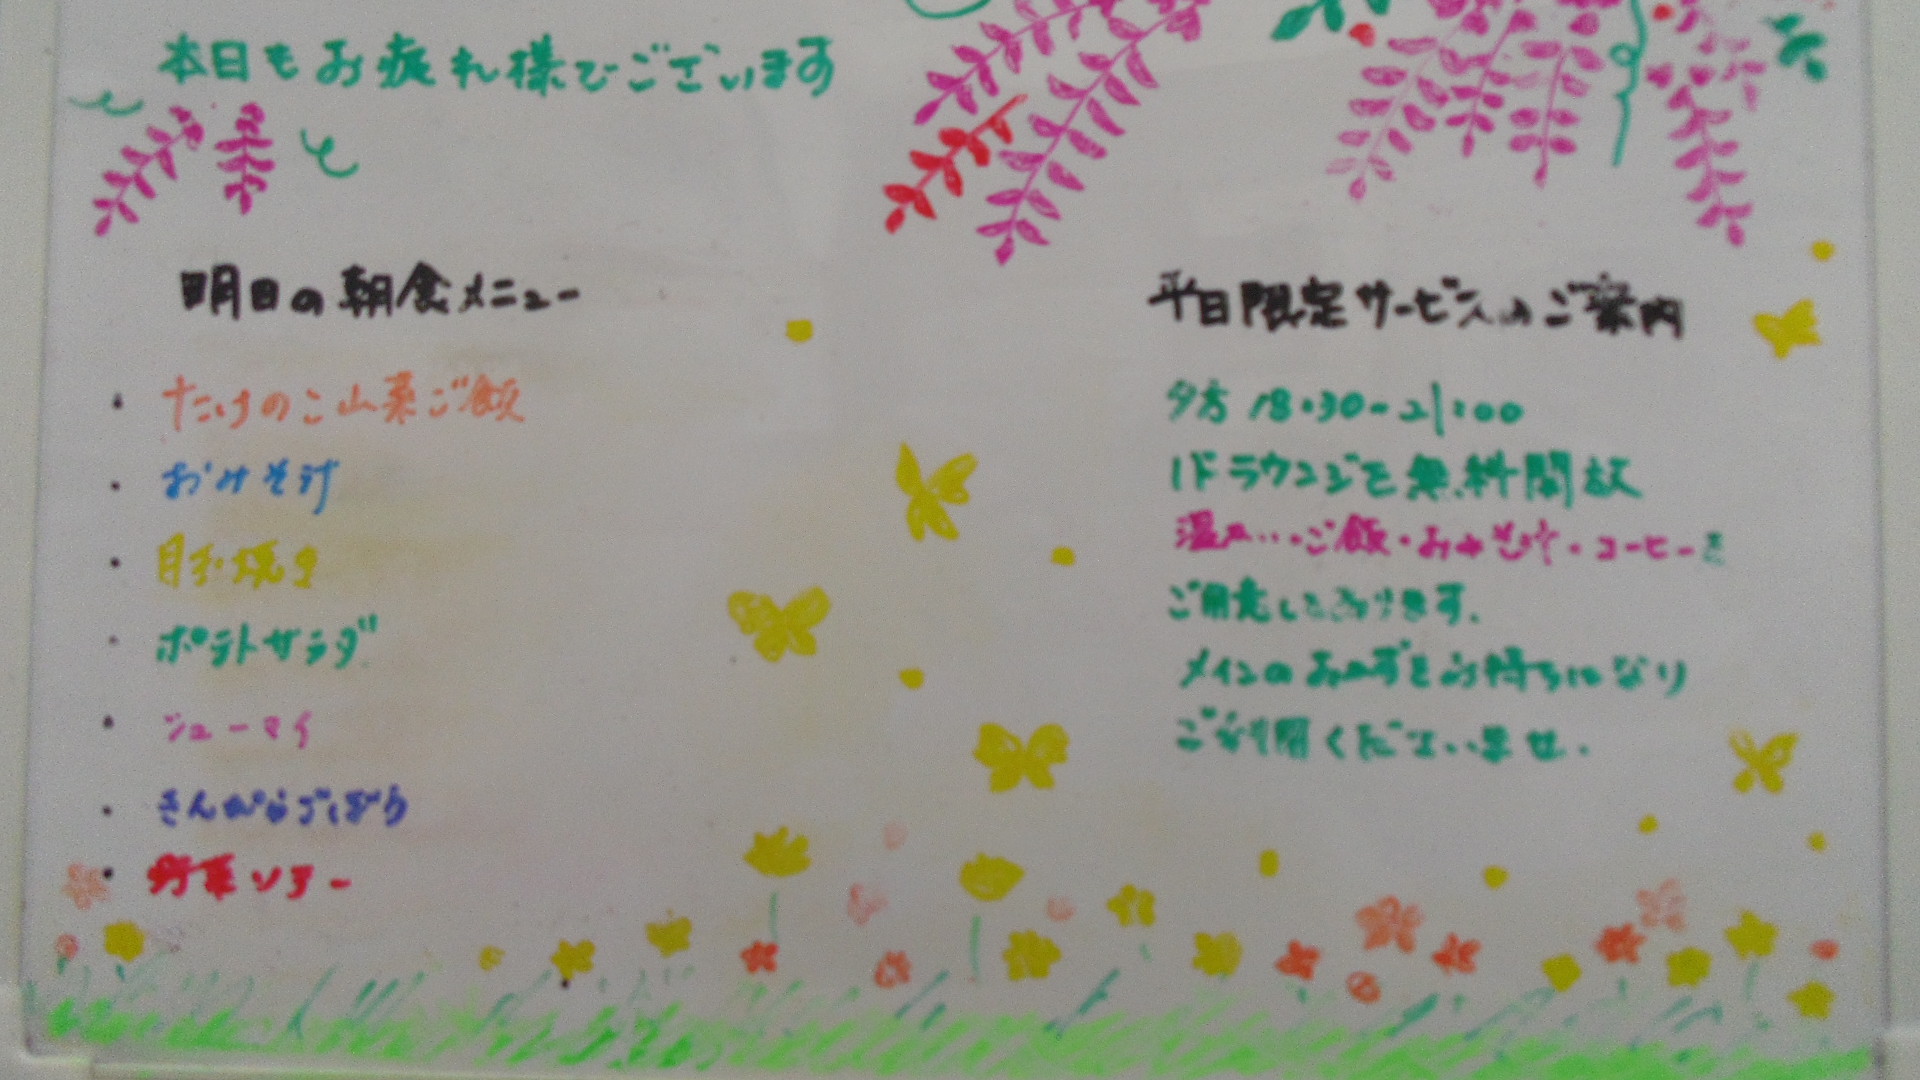 本日もお疲れ様でございます
明日の朝食メニュー
・たけのこ山菜ご飯
・おみそ汁
・目玉焼き
・ポテトサラダ
・シューマイ
・きんぴらごぼう
・野菜ソテー
平日限定サービスのご案内
夕方 18:30-21:00
1Fラウンジを無料開放
温玉・・・ご飯・おみそ汁・コーヒーを
ご用意しております。
メインのおかずをお持ちになり
ご利用くださいませ.